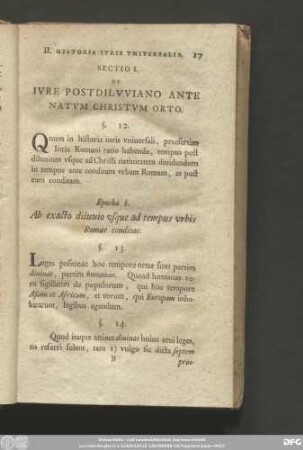 II. HISTORIA IVRIS VNIVERSALIS. 17
SECTIO I.
DE
IVRE POSTDILVVIANO ANTE
NATVM CHRISTVM ORTO.
§. 12.
Quum in historia iuris vniuersali, praesertim
Iuris Romani ratio habenda, tempus post
diluuium vsque ad Christi natiuitatem diuidendum
in tempus ante conditam vrbem Romam, et post
eam conditam.
Epocha I.
Ab exacto diluuio vsque ad tempus vrbis
Romae conditae.
§. 13.
Leges positiuae hoc tempore natae sunt partim
diuinae, partim humanae. Quoad humanas
sigillatim de populorum, qui hoc tempore
Asiam et Africam, et eorum, qui Europam inha-
bitarunt, legibus agendum.
§. 14.
Quod itaque attinet diuinas huius aeui leges,
eo referri solent, tam 1) vulgo sic dicta septem
B
prae-